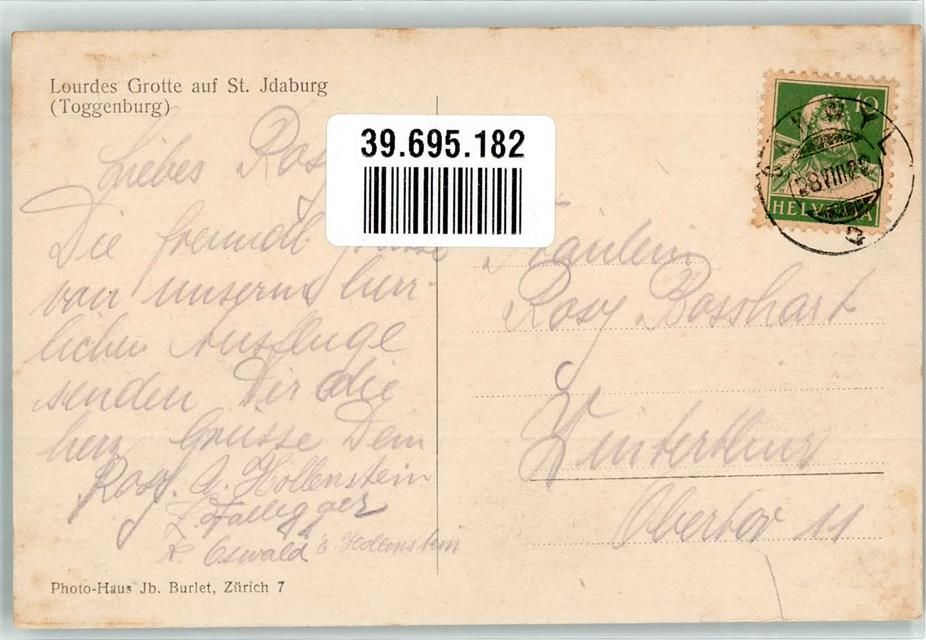 Lourdes Grotte auf St. Jdaburg
(Toggenburg)
39.695.182
10
HELVETIA
WYL
28 VIII 22
Liebes Rosy
Die freundl. Grüsse
von unserm herr-
lichen Ausfluge
senden Dir die
herz Grüsse Dein
Rosy. A. Hollenstein
Oswald E. Hollenstein
Photo-Haus Jb. Burlet, Zürich 7
Fräulein
Rosy Bosshart
Winterthur
Obertor 11